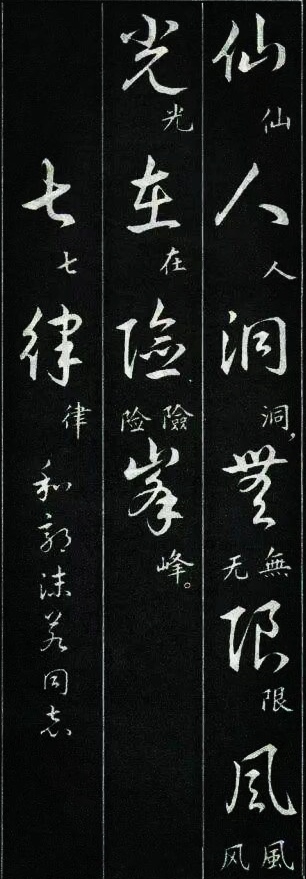 仙人洞無限風
仙人洞，無无限風风
光在險峯
光在險险峰。
七律
七律
和郭沫若同志